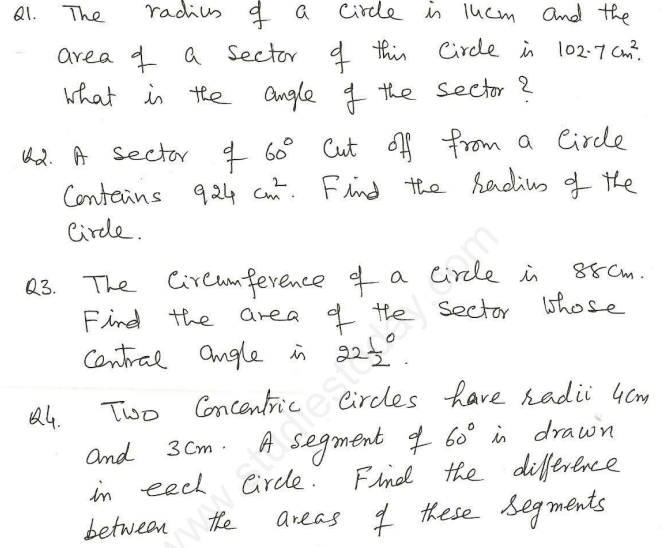 Q1. The radius of a circle is 14cm and the
area of a sector of this circle is 102.7 cm².
What is the angle of the sector?
Q2. A sector of 60° cut off from a circle
Contains 924 cm². Find the radius of the
Circle.
Q3. The Circumference of a circle is 88cm.
Find the area of the sector whose
Central angle is 22½°.
Q4. Two Concentric Circles have radii 4cm
and 3cm. A segment of 60° is drawn
in each circle. Find the difference
between the areas of these segments
www.studiestoday.com